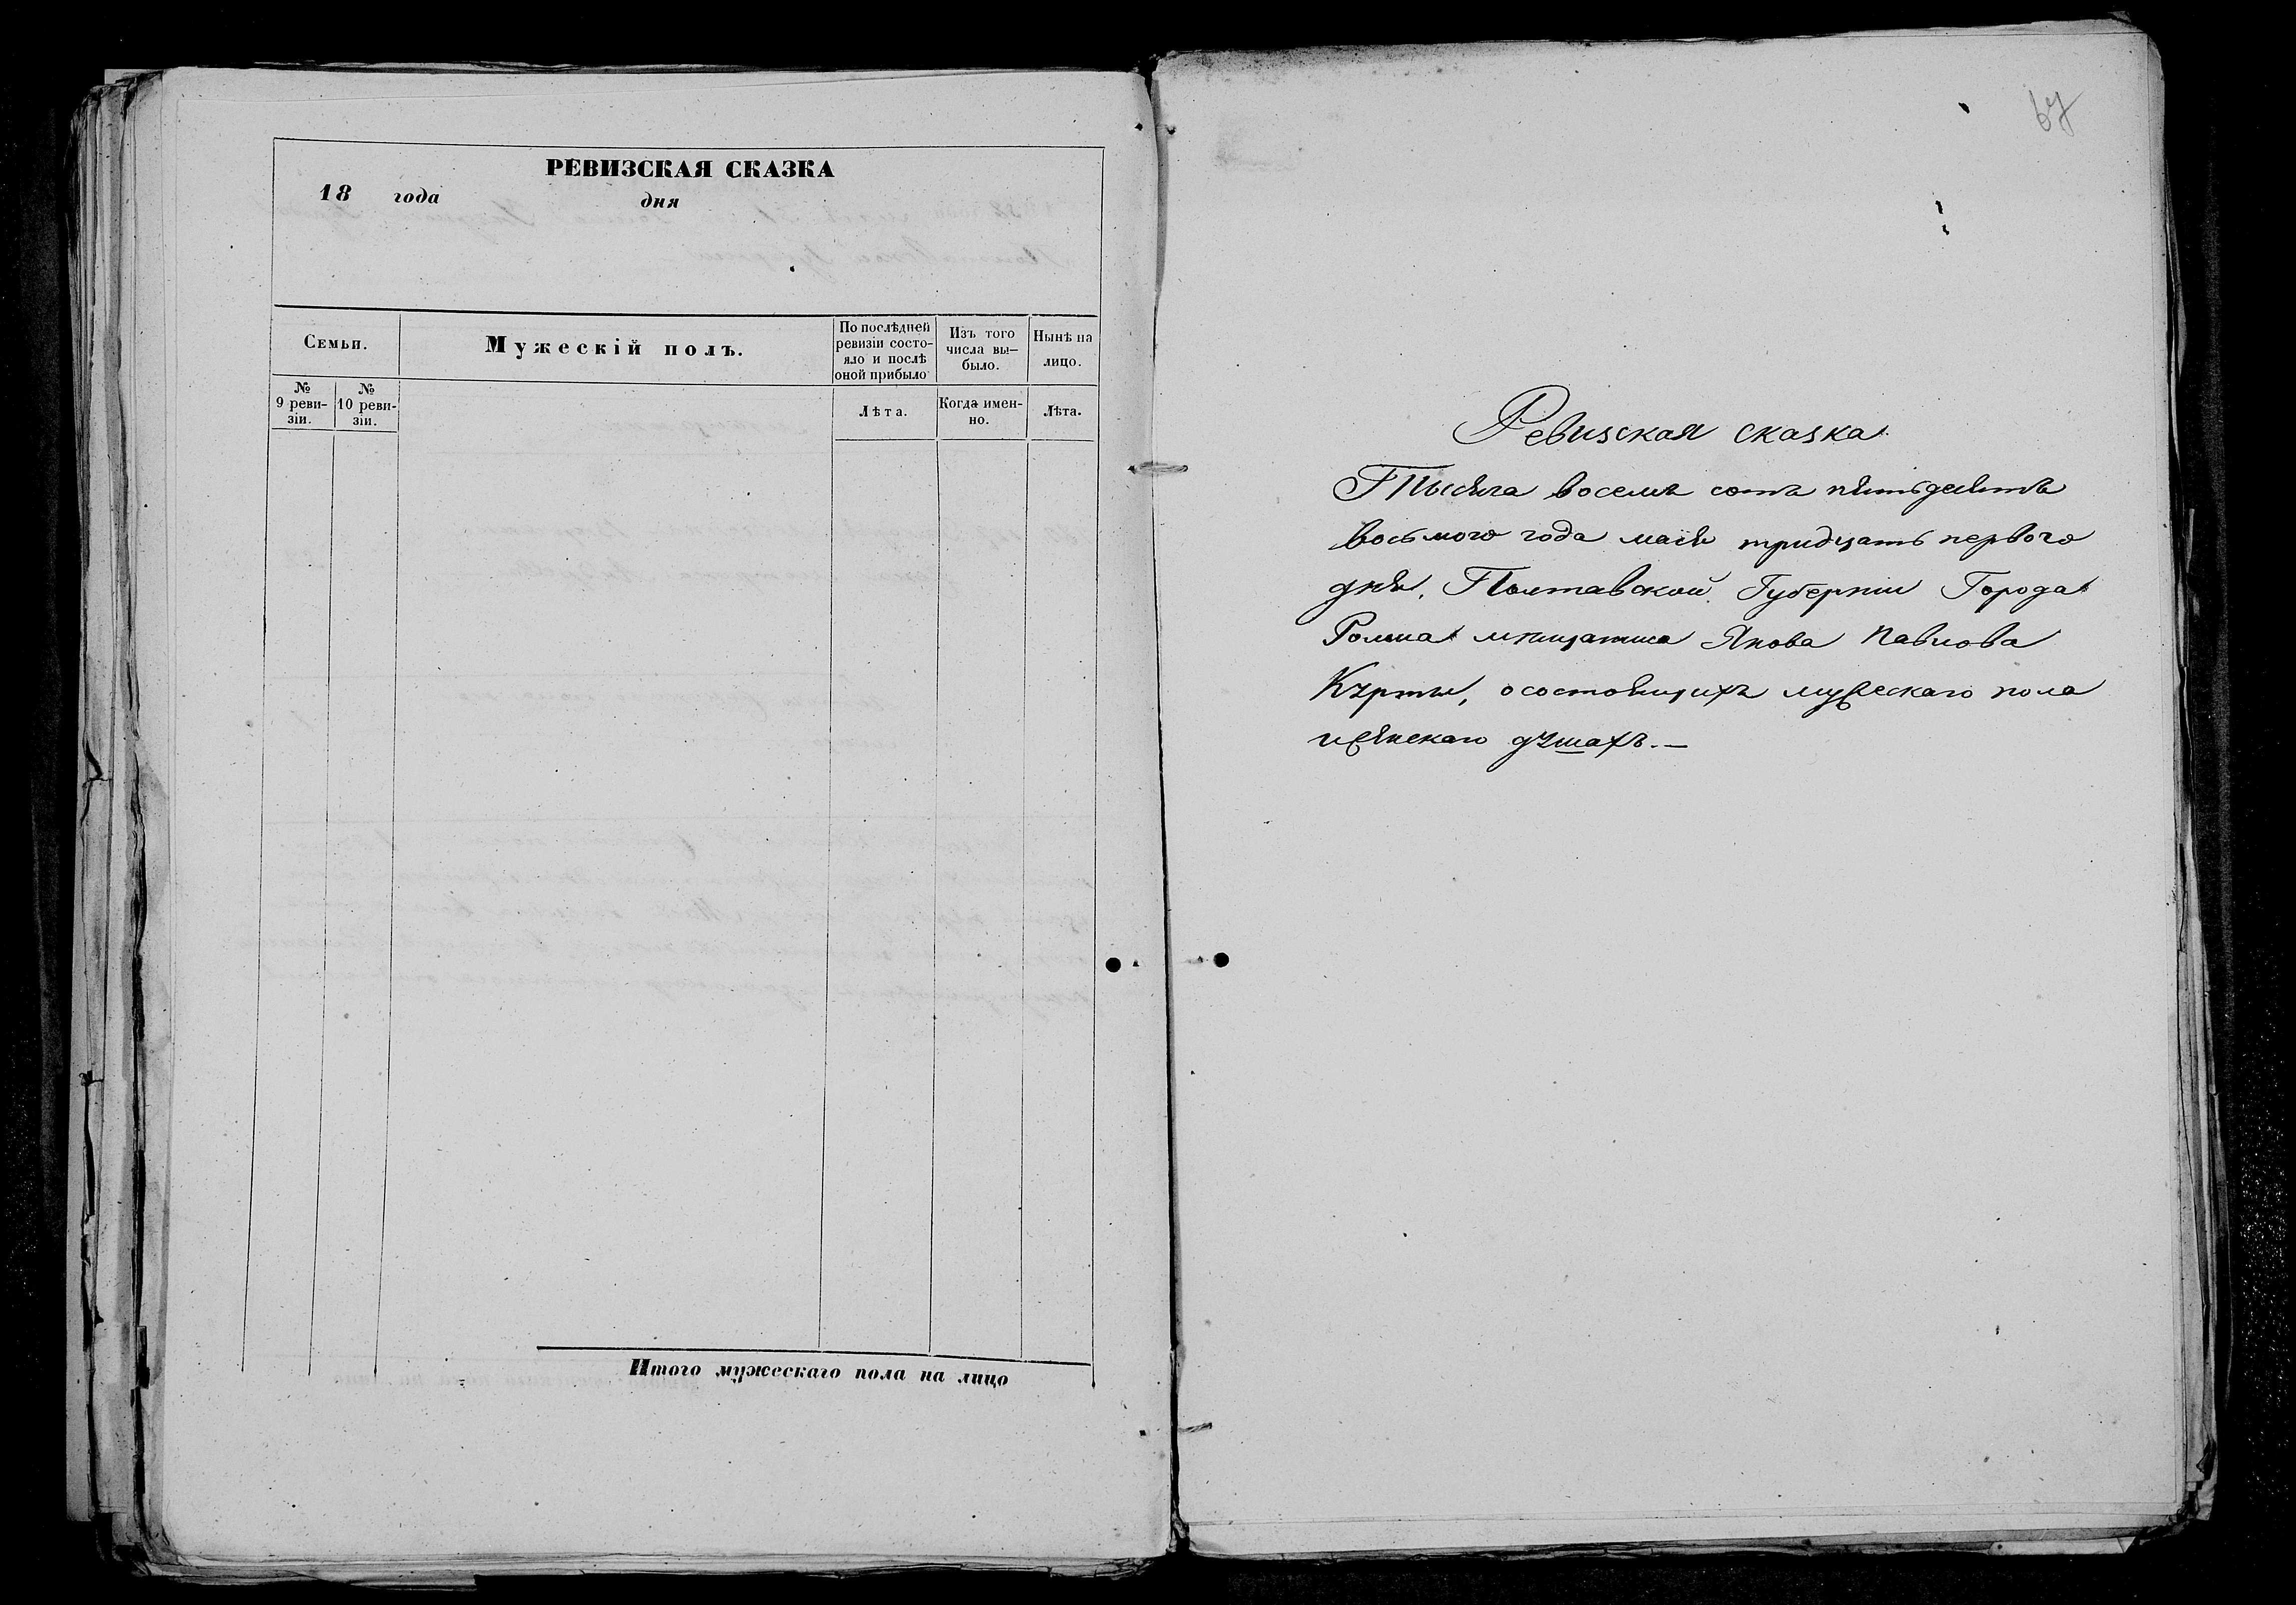 РЕВИЗСКАЯ СКАЗКА
18 года дня
Семьи.
Мужескій полъ.
По послѣдней
ревизіи состо-
яло и послѣ
оной прибыло
Изъ того
числа вы-
было.
Нынѣ на
лицо.
№
9 реви-
зіи.
№
10 реви-
зіи.
Лѣта.
Когда имен-
но.
Лѣта.
Итого мужескаго пола на лицо
67
Ревизская сказка
Тысяча восемь сотъ пятьдесятъ
восьмого года мая тридцать первого
дня, Полтавской Губерніи Города
Ромна мѣщанина Якова Павлова
Курты, о состоящихъ мужескаго пола
и женскаго душахъ. —